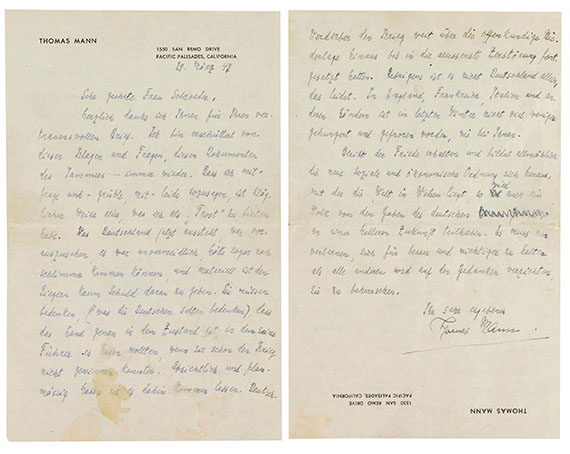 THOMAS MANN
1550 SAN REMO DRIVE
PACIFIC PALISADES, CALIFORNIA
März 47
Sehr geehrte Frau Schroeder,
herzlich danke ich Ihnen für Ihren ver-
trauensvollen Brief. Ich bin erschüttert von
diesen Klagen und Fragen, diesen Dokumenten
des Jammers – immer wieder. Dass ich mit-
frage und -grüble, mit-leide sozusagen, ist kläg-
licher Weise alles, was ich als „Trost“ zu bieten
habe. Was Deutschland jetzt aussteht war vor-
auszusehen, es war unvermeidlich, hätte sogar noch
schlimmer kommen können und materiell ist den
Siegern kaum Schuld daran zu geben. Sie müssen
bedenken (was die Deutschen sollten bedenken) dass
das Land genau in dem Zustand ist, in dem seine
Führer es wollten, wenn sie schon den Krieg
nicht gewinnen konnten. Absichtlich und plan-
mässig haben sie es dahin kommen lassen. Deutsch-
Verderben den Krieg weit über die offenkundige Nie-
derlage hinaus bis in die äusserste Zerstörung fort
gesetzt hatten. Uebrigens ist es nicht Deutschland allein,
das leidet. In England, Frankreich, Italien und an-
deren Ländern ist im letzten Winter nicht viel weniger
gehungert und gefroren worden, wie bei Ihnen.
Bleibt der Friede erhalten und bildet allmählich
die neue soziale und ökonomische Ordnung sich heraus,
mit der die Welt in Wehen liegt, so wird auch ein
Volk von den Gaben des deutschen
an einer helleren Zukunft teilhaben. Es muss nur
verlernen, sich für besser und wichtiger zu halten
als alle anderen und auf den Gedanken verzichten,
sie zu beherrschen.
Ihr sehr ergebener
Thomas Mann.
THOMAS MANN
1550 SAN REMO DRIVE
PACIFIC PALISADES, CALIFORNIA